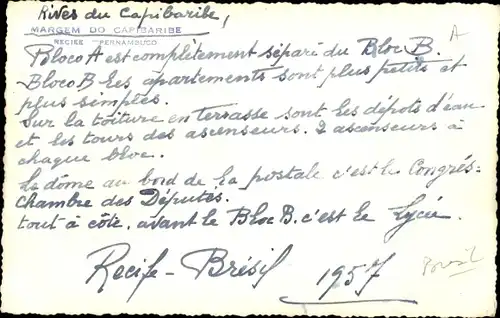 Rives du Capibaribe,
MARGEM DO CAPIBARIBE
RECIFE PERNAMBUCO
A
Bloco A est complètement séparé du Bloc B.
Bloco B les apartements sont plus petits et
plus simples.
Sur la toiture en terrasse sont les dépots d'eau
et les tours des ascenseurs. 2 ascenseurs à
chaque bloc.
Le dôme au bord de la postale c'est le Congrés-
Chambre des Députés.
tout à côté, avant le Bloc B. c'est le Lycée.
Recife - Brésil 1957